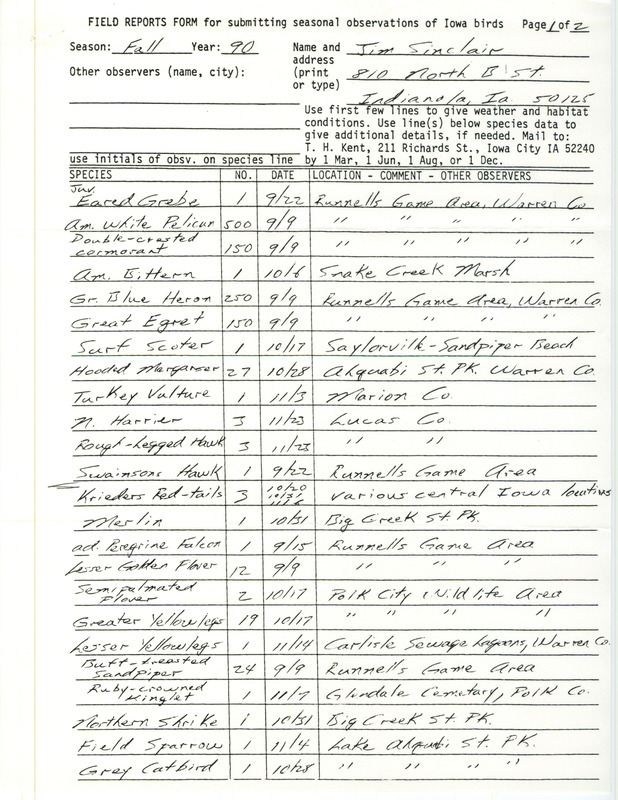 FIELD REPORTS FORM for submitting seasonal observations of Iowa birds Page 1 of 2
Season: Fall Year: 90 Name and Jim Sinclair
address
Other observers (name, city): (print 810 North B St.
or type)
Indianola, Ia. 50125
Use first few lines to give weather and habitat
conditions. Use line(s) below species data to
give additional details, if needed. Mail to:
T. H. Kent, 211 Richards St., Iowa City IA 52240
use initials of obsv. on species line by 1 Mar, 1 Jun, 1 Aug, or 1 Dec.
SPECIES NO. DATE LOCATION - COMMENT - OTHER OBSERVERS
Juv.
Eared Grebe 1 9/22 Runnells Game Area, Warren Co
Am. White Pelican 500 9/9 " " " " "
Double-crested
cormorant 150 9/9 " " " " "
Am. Bittern 1 10/6 Snake Creek Marsh
Gr. Blue Heron 250 9/9 Runnells Game Area, Warren Co.
Great Egret 150 9/9 " " " " "
Surf Scoter 1 10/17 Saylorville-Sandpiper Beach
Hooded Merganser 27 10/28 Ahquabi St. PK. Warren Co.
Turkey Vulture 1 11/3 Marion Co.
N. Harrier 3 11/23 Lucas Co.
Rough-Legged Hawk 3 11/23 " "
Swainsons Hawk 1 9/22 Runnells Game Area
Krieders Red-tails 3 10/20 10/31 11/6 various central Iowa locations
Merlin 1 10/31 Big Creek St. PK.
ad. Peregrine Falcon 1 9/15 Runnells Game Area
Lesser Golden Plover 12 9/9 " " "
Semipalmated
Plover 2 10/17 Polk City Wildlife Area
Greater Yellowlegs 19 10/17 " " " "
Lesser Yellowlegs 1 11/14 Carlisle Sewage Lagoons, Warren Co.
Buff-breasted
Sandpiper 24 9/9 Runnells Game Area
Ruby-crowned
Kinglet 1 11/7 Glendale Cemetary, Polk Co.
Northern Shrike 1 10/31 Big Creek St. PK.
Field Sparrow 1 11/4 Lake Ahquabi St. PK.
Grey Catbird 1 10/28 " " " "